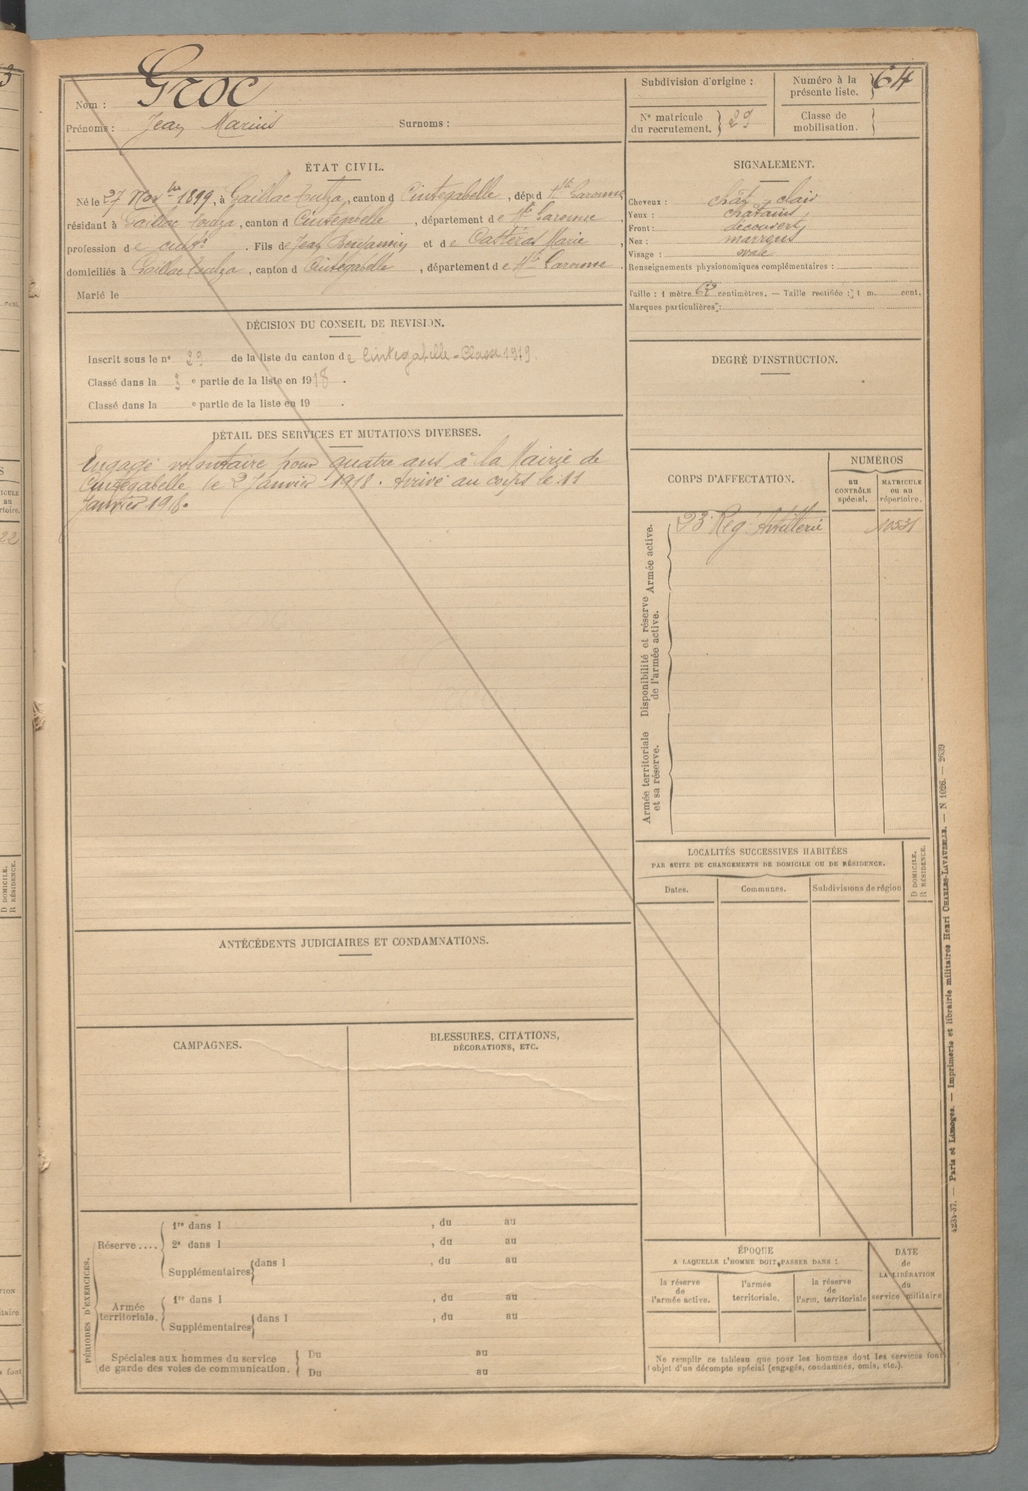 Nom : Groc
Prénoms : Jean Marius Surnoms :
Subdivision d'origine :
Numéro à la présente liste. 64
N° matricule du recrutement. 29
Classe de mobilisation.
ÉTAT CIVIL.
Né le 27 Nov bre 1899, à Gaillac Toulza, canton d Cintegabelle, dép d Hte Garonne
résidant à Gaillac Toulza, canton d Cintegabelle, département de Hte Garonne,
profession de cult r. Fils de Jean Benjamin et de Castéras Marie,
domiciliés à Gaillac Toulza, canton d Cintegabelle, département de Hte Garonne.
Marié le
SIGNALEMENT.
Cheveux : chât clair
Yeux : chatains
Front : découvert
Nez : marrons
Visage : ovale
Renseignements physionomiques complémentaires :
Taille : 1 mètre 62 centimètres. — Taille rectifiée : 1 m. cent.
Marques particulières :
DÉCISION DU CONSEIL DE REVISION.
Inscrit sous le n° 29 de la liste du canton de Cintegabelle - Classe 1919.
Classé dans la 3 e partie de la liste en 1918.
Classé dans la e partie de la liste en 19 .
DEGRÉ D'INSTRUCTION.
DÉTAIL DES SERVICES ET MUTATIONS DIVERSES.
Engagé volontaire pour quatre ans à la Mairie de
Cintegabelle le 2 Janvier 1918. Arrivé au corps le 11
Janvier 1918.
CORPS D'AFFECTATION.
NUMÉROS
AU CONTRÔLE spécial.
MATRICULE ou au répertoire.
Armée active.
23e Rég. Artillerie 10531
Disponibilité et réserve de l'armée active.
Armée territoriale et sa réserve.
LOCALITÉS SUCCESSIVES HABITÉES
PAR SUITE DE CHANGEMENTS DE DOMICILE OU DE RÉSIDENCE.
Dates. Communes. Subdivisions de région
D DOMICILE.
R RÉSIDENCE.
ANTÉCÉDENTS JUDICIAIRES ET CONDAMNATIONS.
CAMPAGNES.
BLESSURES, CITATIONS,
DÉCORATIONS, ETC.
PÉRIODES D'EXERCICES.
Réserve....
1re dans l , du au
2e dans l , du au
Supplémentaires dans l , du au
Armée territoriale.
1re dans l , du au
Supplémentaires dans l , du au
Spéciales aux hommes du service
de garde des voies de communication.
Du au
Du au
ÉPOQUE
A LAQUELLE L'HOMME DOIT PASSER DANS :
la réserve de l'armée active.
l'armée territoriale.
la réserve de l'arm. territoriale
DATE de LA LIBÉRATION du service militaire
Ne remplir ce tableau que pour les hommes dont les services font
l'objet d'un décompte spécial (engagés, condamnés, omis, etc.).
4234-37. — Paris et Limoges. — Imprimerie et librairie militaires Henri CHARLES-LAVAUZELLE. — N 1026. — 2639